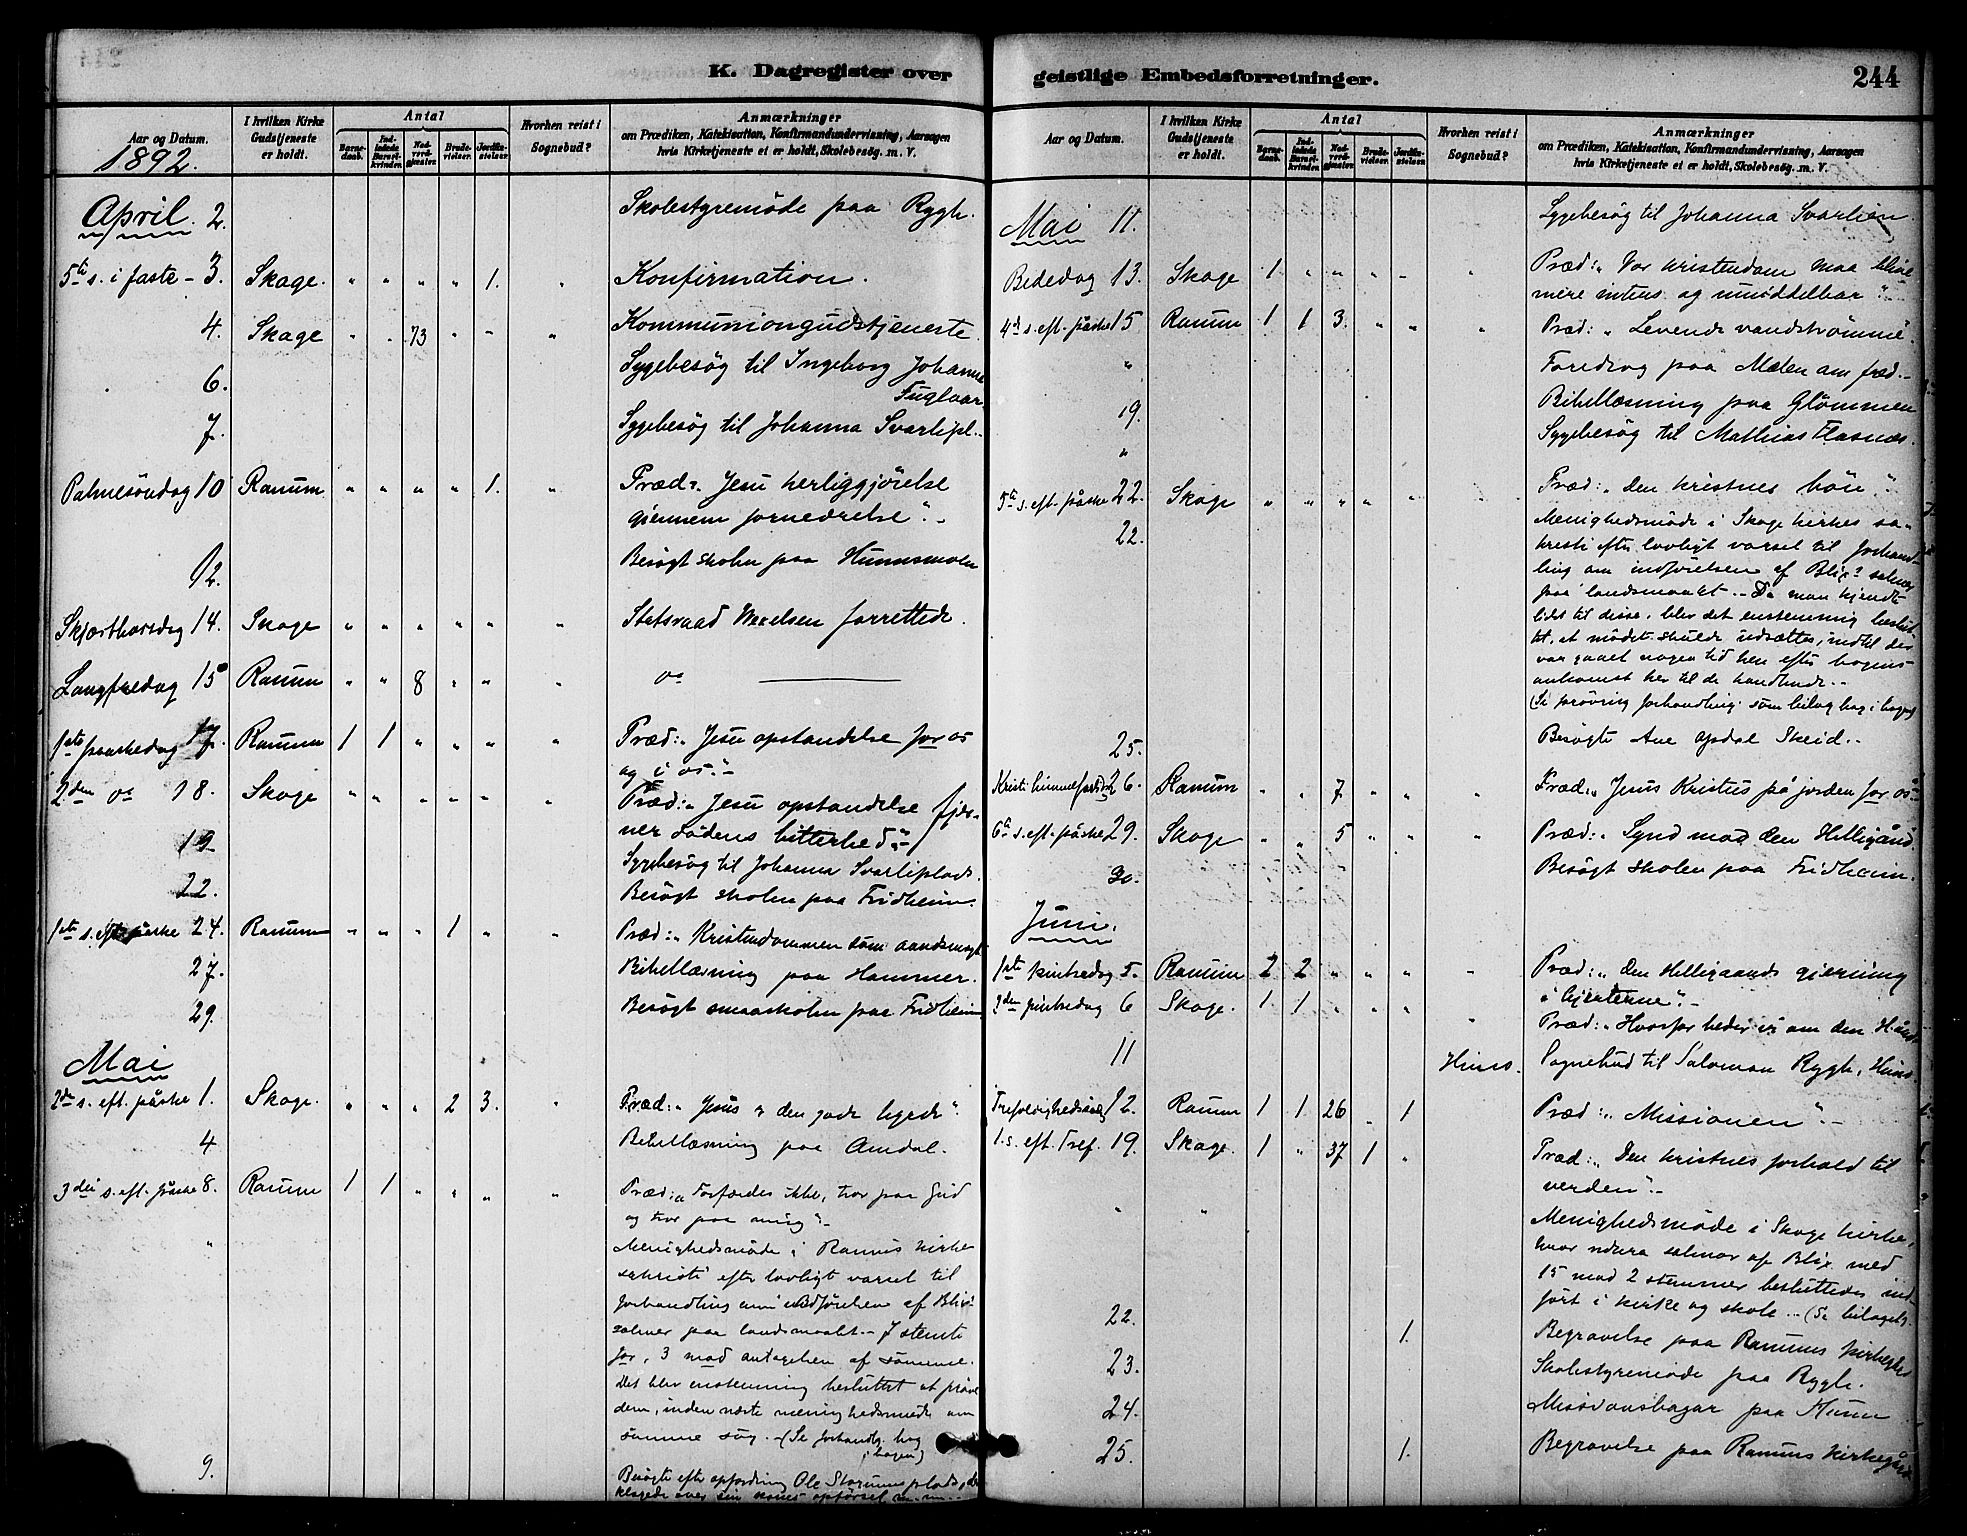 K. Dagregister over
Aar og Datum.
1892.
I hvilken Kirke Gudstjeneste er holdt.
Antal
Barnedaab.
Indledede Barselkvinder.
Nadverdgjæster.
Brudevielser.
Jordfæstelser.
Hvorhen reist i Sognebud?
Anmærkninger
om Prædiken, Katekisation, Konfirmandundervisning, Aarsagen
hvis Kirketjeneste ei er holdt, Skolebesøg. m. V.
April 2. Skolestyremöde paa Rygh.
5te s. i faste - 3. Skage. " " " " 1. " Konfirmation.
4. Skage " " 73 " " " Kommuniongudstjeneste
6. Sygebesøg til Ingeborg Johanne
7. Sygebesøg til Johanna Svarlipl..
Palmesöndag 10 Ranum " " " " 1. " Præd: "Jesu herliggjörelse
gjennem fornedrelse".-
12. Besögt skolen paa Hunnsmoen
Skjærthorsdag 14. Skage " " " " " " Statsraad Wexelsen forrettede.
Langfredag 15 Ranum " " 8 " " " do
1ste paaskedag 17. Ranum 1 1 " " " " Præd: "Jesu opstandelse for os
og i os."-
2den do 18. Skage " " " " " " Præd: "Jesu opstandelse fjer-
ner dödens bitterhed".-
19 Sygebesøg til Johanna Svarliplads.
22. Besögt skolen paa Fridheim.
1ste s. eft. påske 24. Ranum " " " 1 " " Præd: "Kristendommen som aandsmagt
27. Bibellæsning paa Hammer.
29. Besögt smaaskolen paa Fridheim
Mai
2den s. eft. påske 1. Skage. " " " 2 3. " Præd: "Jesus den gode hyrde".
4 Bibellæsning paa Amdal.
3die s. eft. påske 8. Ranum 1 1 " " " " Præd: "Forfærdes ikke, tror paa Gud
og tror paa mig".-
" Menighedsmöde i Ranums kirkes
sakristi efter lovligt varsel til
forhandling om indförelsen af Blix's
salmer paa landsmaalet.- 7 stemte
for, 3 mod antagelsen af samme.
Det blev enstemmig besluttet at pröve
dem, inden næste menighedsmöde om
samme sag. - (Se forhandlg. bag
i bogen)
9. Besögte efter opfordring Ole Storums plads, der
klagede over sin kones opførsel m. m.
geistlige Embedsforretninger.
244
Aar og Datum.
I hvilken Kirke Gudstjeneste er holdt.
Antal
Barnedaab.
Indledede Barselkvinder.
Nadverdgjæster.
Brudevielser.
Jordfæstelser.
Hvorhen reist i Sognebud?
Anmærkninger
om Prædiken, Katekisation, Konfirmandundervisning, Aarsagen
hvis Kirketjeneste ei er holdt, Skolebesøg. m. V.
Mai 11. Sygebesøg til Johanna Svarlien
Bededag 13. Skage 1 " " " " " Præd: "Vor kristendom maa blive
mere intens og umiddelbar"
4de s. eft. påske 15 Ranum 1 1 3. " " " Præd: "Levende vandströmme".
" Foredrag paa Mælen om fred.-
19. Bibellæsning paa Glömmen
" Sygebesøg til Mathias Flasnæs.
5te s. eft. påske 22. Skage " " " " " " Præd: "Den kristnes bön".
22. Menighedsmöde i Skage kirkes sa-
kristi efter lovligt varsel til forhand-
ling om indförelsen af Blix's salmer
paa landsmaalet.. Da man kjendte
lidet til disse, blev det enstemmig beslut-
tet, at mödet skulde udsættes, indtil der
var gaaet nogen tid hen efter bogens
ankomst her til de handlende..
25. Besøgte Ane Opdal Skeid..
Kristi himmelfartsdag 26. Ranum " " 7 " " " Præd: "Jesus Kristus på jorden for os"
6te s. eft. påske 29. Skage " " 5 " " " Præd: "Synd mod den Helligånd
30. Besögt skolen paa Fridheim.
Juni.
1ste pintsedag 5. Ranum 2 2 " " " " Præd: "Den Helligaands gjerning
i hjerterne".-
2den pintsedag 6 Skage. 1 1 " " " " Præd: "Hvorfor beder vi om den Hånd
11 Hunn. Sognebud til Salomon Rygh, Hunn.
Trefoldighedssöndag 12. Ranum 1 1 26 " 1 Præd: "Missionen".-
1. s. eft. Tref. 19. Skage. 1 " 37 1 " Præd: "Den kristnes forhold til
verden".-
" " Menighedsmöde i Skage kirke,
hvor salmer af Blix med
15 mod 2 stemmer besluttedes ind-
fört i kirke og skole.. (Se bilaget).
22. 1. Begravelse paa Ranums kirkegård
23. Skolestyremöde paa Rygh.
24. Missionsbazar paa Hunn
25. 1. Begravelse paa Ranums kirkegård